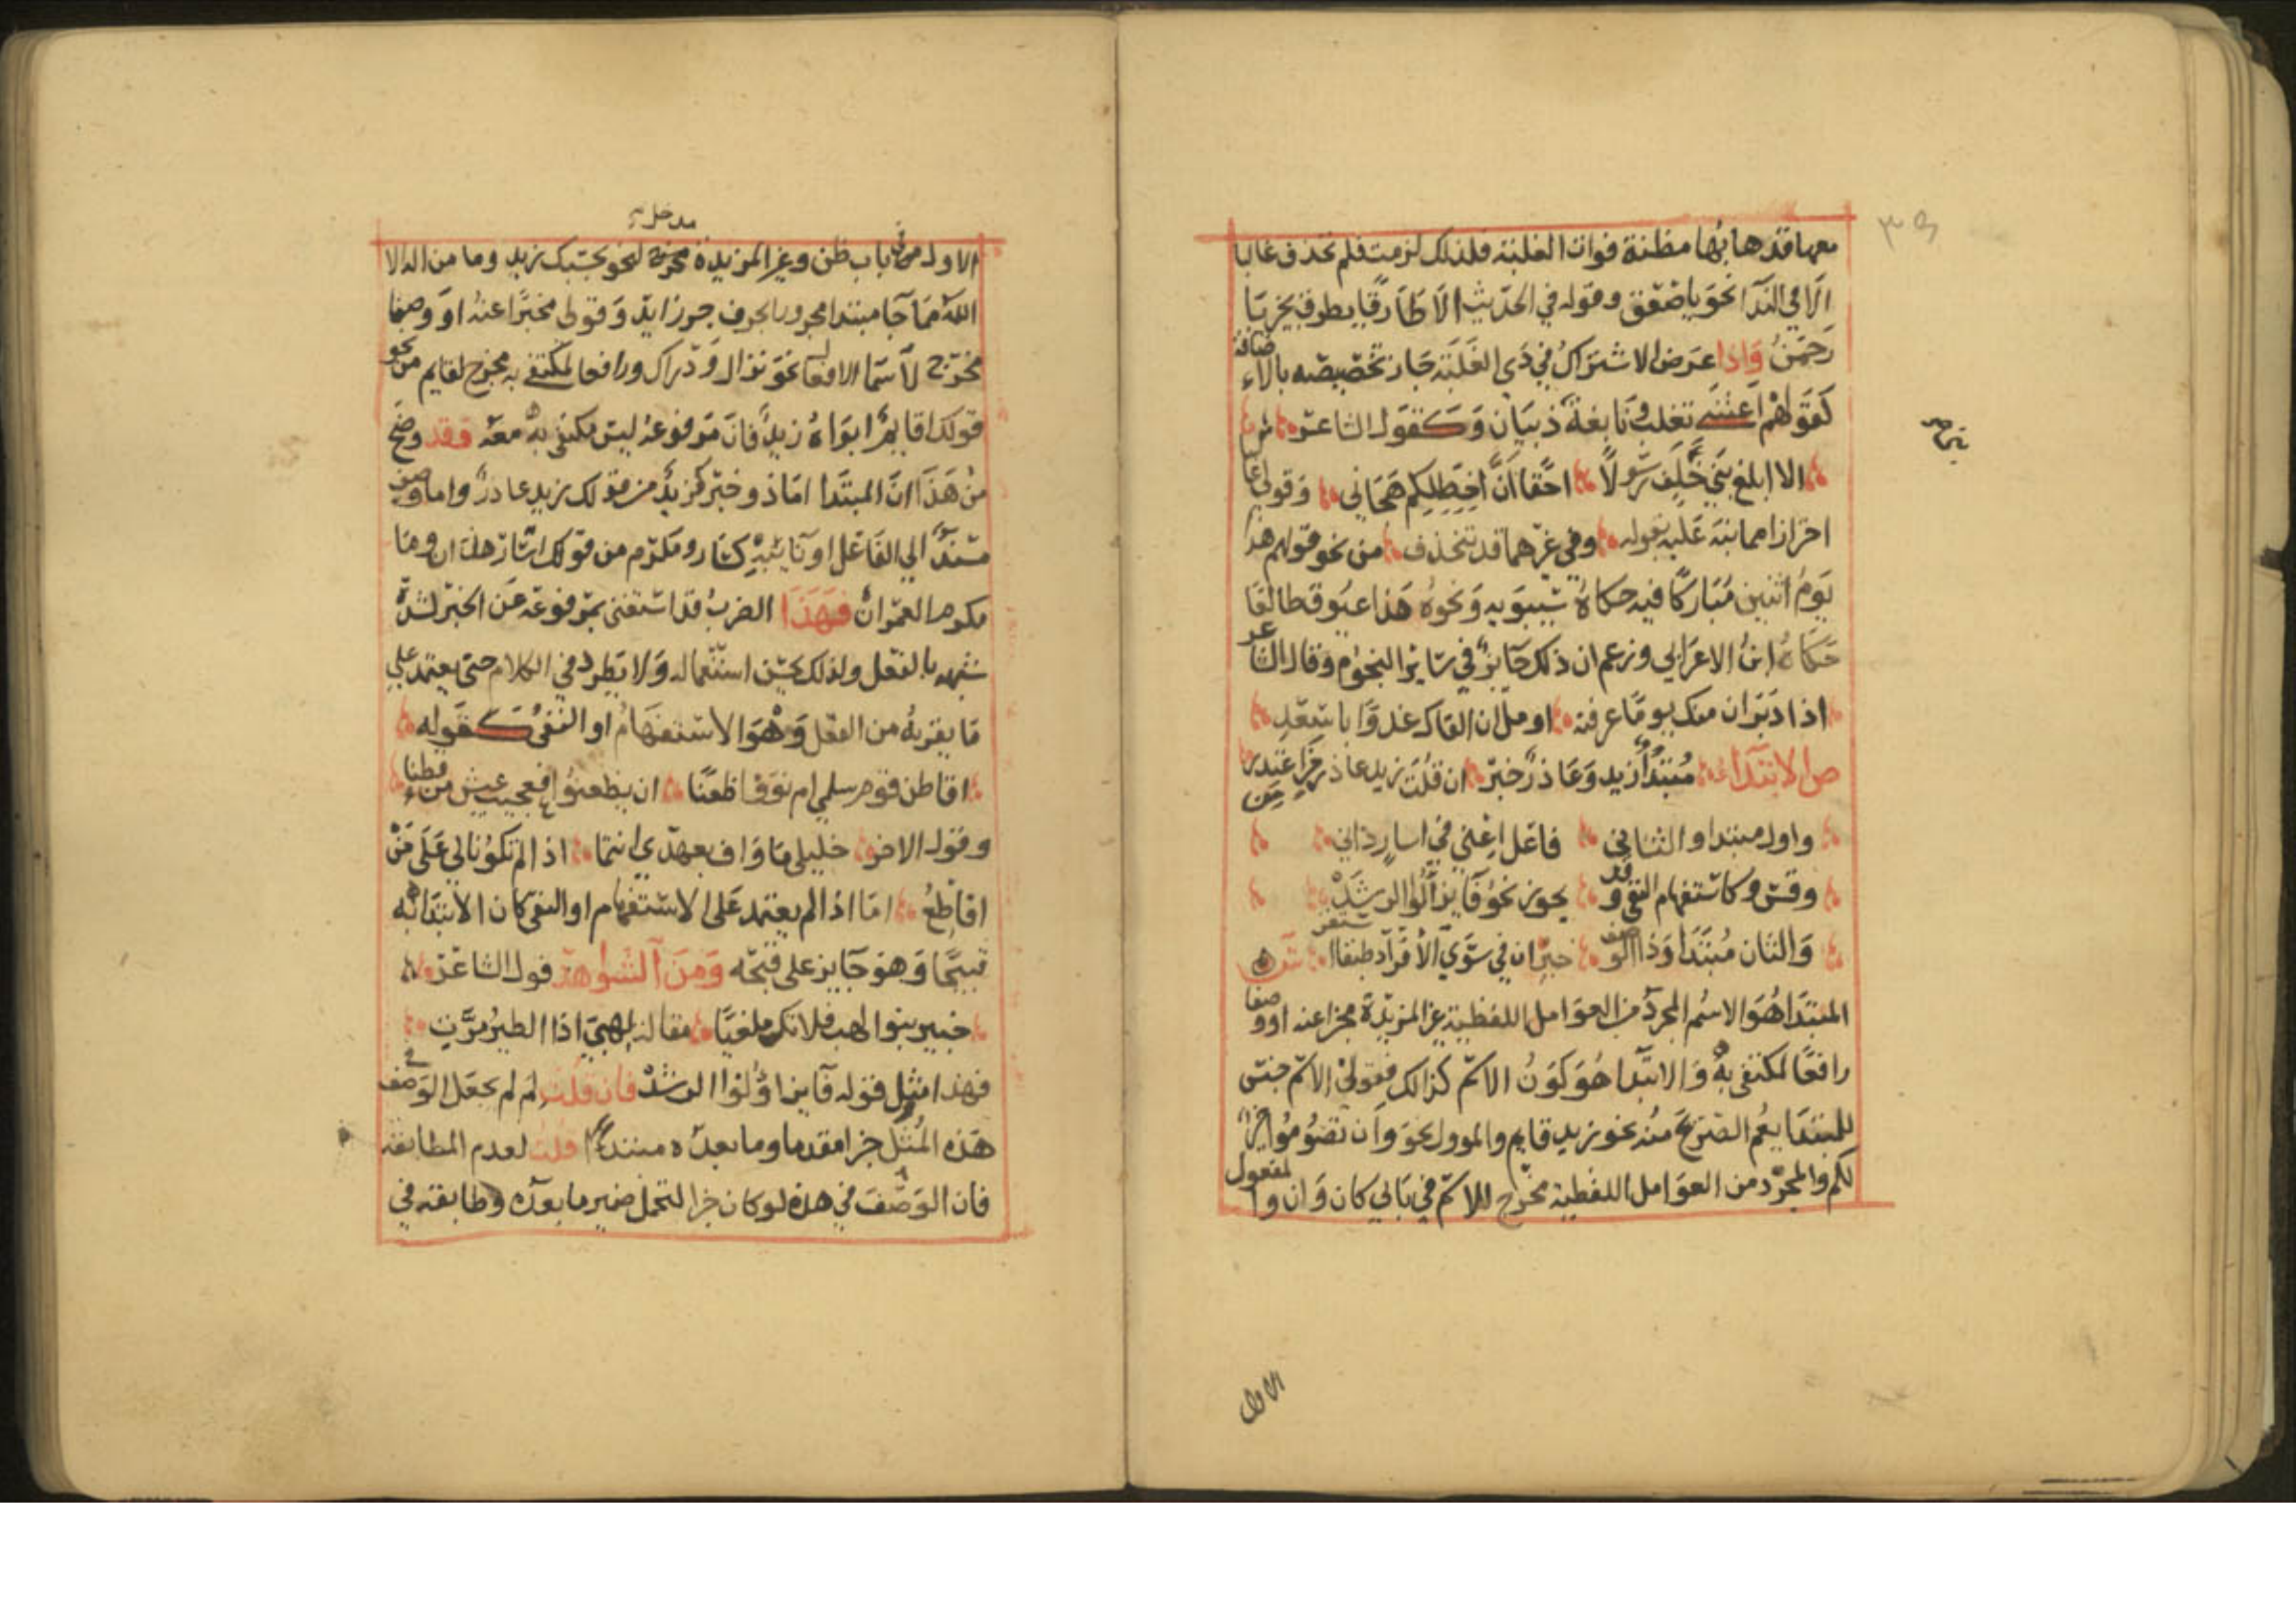 معها قدها بها مظنة فوات الغلبة فلذلك لزمت فلم تحذف غالبا
الا في الندا نحو يا صعق وقوله في الحديث الا طارقا يطرق بخير يا
رحمن واذا عرض الاشتراك في ذي الغلبة جاز تخصيصه بالاضافة
كقولهم اعشى تغلب ونابغة ذبيان وكقول الشاعر
الا ابلغ بني خلف رسولا احقا ان اخطلكم هجاني وقولي غالبا
احترازا مما نبه عليه بقوله وفي غيرهما قد تنحذف من نحو قولهم هذا
يوم اثنين مباركا فيه حكاه سيبويه ونحوه هذا عيوق طالعا
حكاه ابن الاعرابي وزعم ان ذلك جايز في ساير النجوم وقال الشاعر
اذا دبران منك يوما عرفته اومل ان القاك غدوا باسعد
ص الابتداء مبتدأ زيد وعاذر خبر ان قلت زيد عاذر من اعتذر
واول مبتدا والثاني فاعل اغني في اسار ذان
وقس وكاستفهام النفي وقد يجوز نحو فايز اولوا الرشد
والثان مبتدا وذا الوصف خبر ان في سوي الافراد طبقا استقر ش
المبتدا هو الاسم المجرد من العوامل اللفظية غير المزيدة مخبرا عنه او وصفا
رافعا لمكتفى به والابتدا هو كون الاسم كذالك فقولي الاسم جنس
للمبتدا يعم الصريح منه نحو زيد قايم والموول نحو وان تصوموا خير
لكم والمجرد من العوامل اللفظية مخرج للاسم في بابي كان وان والمفعول
الاول
مدخل
الاول من باب ظن وغير المزيدة مخرج لنحو بحسبك زيد وما من اله الا
الله مما جا مبتدا مجرورا بحرف جر زايد وقولي مخبرا عنه او وصفا
مخرج لاسما الافعال نحو نزال ودراك ورافعا لمكتفى به مخرج لقايم من نحو
قولك اقايم ابواه زيد فان مرفوعه ليس مكتفى به معه فقد وضح
من هذا ان المبتدا اما ذو خبر كزيد من قولك زيد عاذر واما وصف
مسند الي الفاعل او نايبه كسار ومكرم من قولك اسار هذان وما
مكرم العمران فهذا الضرب قد استغنى بمرفوعه عن الخبر لشدة
شبهه بالفعل ولذلك يحسن استعماله ولا يطرد في الكلام حتى يعتمد علي
ما يقربه من الفعل وهو الاستفهام او النفي كقوله
اقاطن قوم سلمي ام نووا ظعنا ان يظعنوا فعجيب عيش من قطنا
وقول الاخر خليلي ما واف بعهدي انتما اذا لم تكونا لي على من
اقاطع اما اذا لم يعتمد على الاستفهام او النفي كان الابتدا به
قبيحا وهو جايز على قبحه ومن الشواهد قول الشاعر
خبير بنوا لهب فلا تك ملغيا مقالة لهبي اذا الطير مرت
فهذا مثل قوله فايز اولوا الرشد فان قلت لم لم يجعل الوصف في
هذه المثل خبرا مقدما وما بعده مبتدا قلت لعدم المطابقة
فان الوصف في هذه لو كان خبرا لتحمل ضمير ما بعده وطابقه في